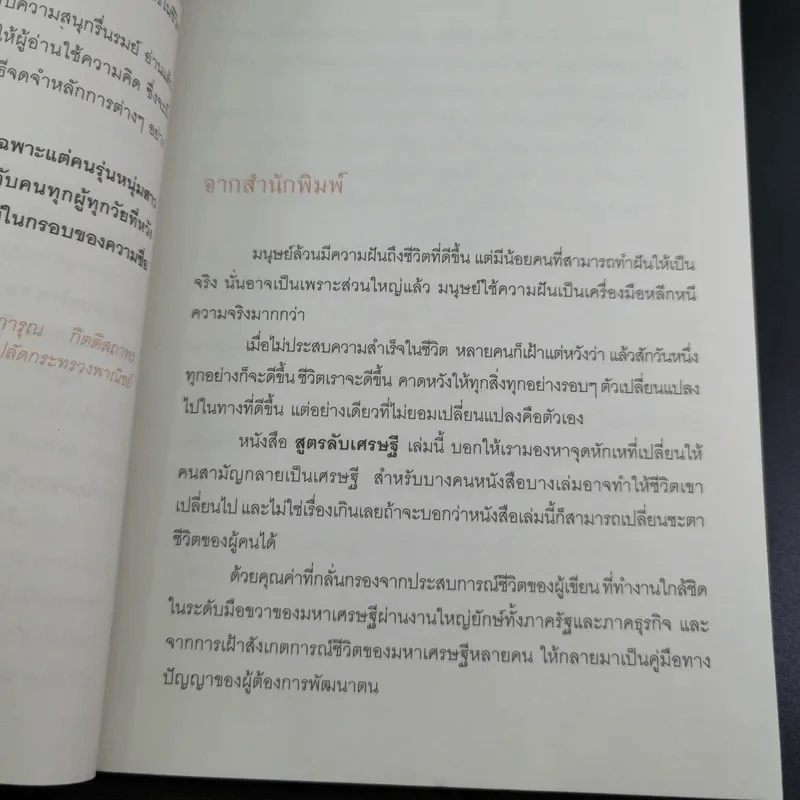 บความสนุกรื่นรมย์ อ่านแล้ว
ให้ผู้อ่านใช้ความคิด ซึ่งจะมี
ธีจดจำหลักการต่างๆ อย่าง
ฉพาะแต่คนรุ่นหนุ่มสาว
รับคนทุกผู้ทุกวัยที่หวัง
ในกรอบของความซื่อ
การุณ กิตติสถาพร
ปลัดกระทรวงพาณิชย์
จากสำนักพิมพ์
มนุษย์ล้วนมีความฝันถึงชีวิตที่ดีขึ้น แต่มีน้อยคนที่สามารถทำฝันให้เป็น
จริง นั่นอาจเป็นเพราะส่วนใหญ่แล้ว มนุษย์ใช้ความฝันเป็นเครื่องมือหลีกหนี
ความจริงมากกว่า
เมื่อไม่ประสบความสำเร็จในชีวิต หลายคนก็เฝ้าแต่หวังว่า แล้วสักวันหนึ่ง
ทุกอย่างก็จะดีขึ้น ชีวิตเราจะดีขึ้น คาดหวังให้ทุกสิ่งทุกอย่างรอบๆ ตัวเปลี่ยนแปลง
ไปในทางที่ดีขึ้น แต่อย่างเดียวที่ไม่ยอมเปลี่ยนแปลงคือตัวเอง
หนังสือ สูตรลับเศรษฐี เล่มนี้ บอกให้เรามองหาจุดหักเหที่เปลี่ยนให้
คนสามัญกลายเป็นเศรษฐี สำหรับบางคนหนังสือบางเล่มอาจทำให้ชีวิตเขา
เปลี่ยนไป และไม่ใช่เรื่องเกินเลยถ้าจะบอกว่าหนังสือเล่มนี้ก็สามารถเปลี่ยนชะตา
ชีวิตของผู้คนได้
ด้วยคุณค่าที่กลั่นกรองจากประสบการณ์ชีวิตของผู้เขียน ที่ทำงานใกล้ชิด
ในระดับมือขวาของมหาเศรษฐีผ่านงานใหญ่ยักษ์ทั้งภาครัฐและภาคธุรกิจ และ
จากการเฝ้าสังเกตการณ์ชีวิตของมหาเศรษฐีหลายคน ให้กลายมาเป็นคู่มือทาง
ปัญญาของผู้ต้องการพัฒนาตน